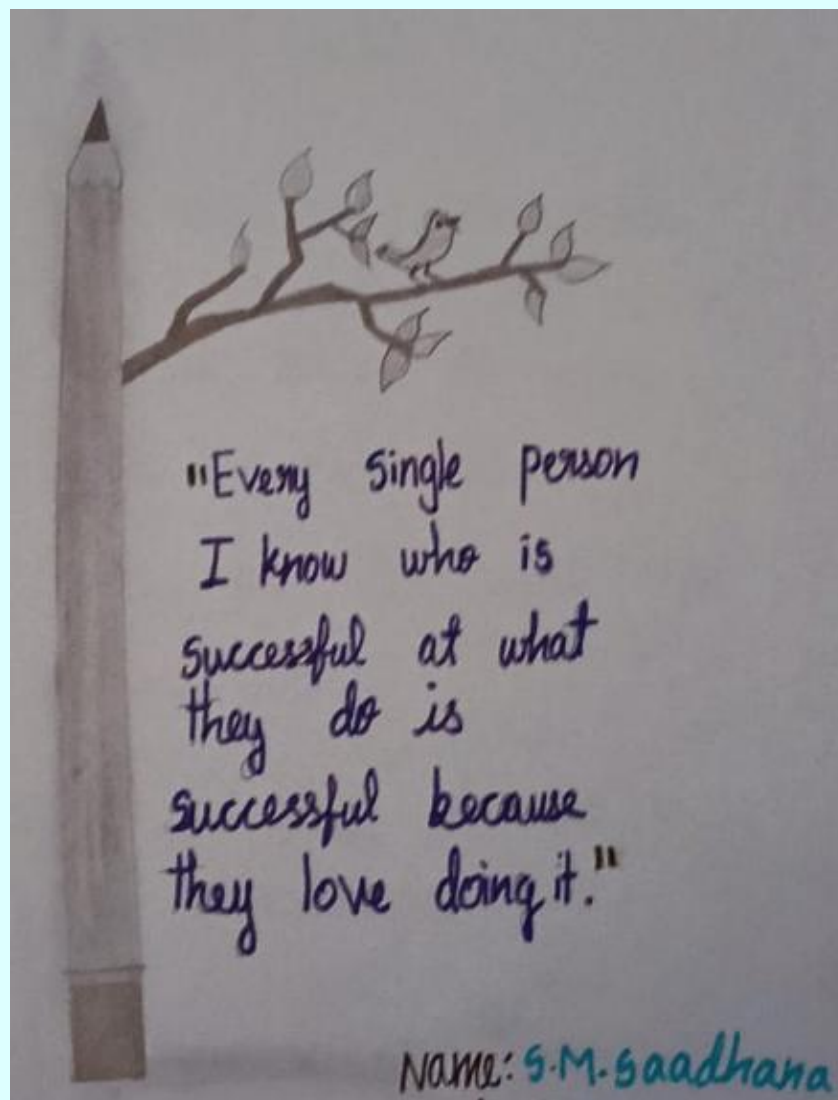 "Every single person
I know who is
successful at what
they do is
successful because
they love doing it."
Name: S.M.Saadhana